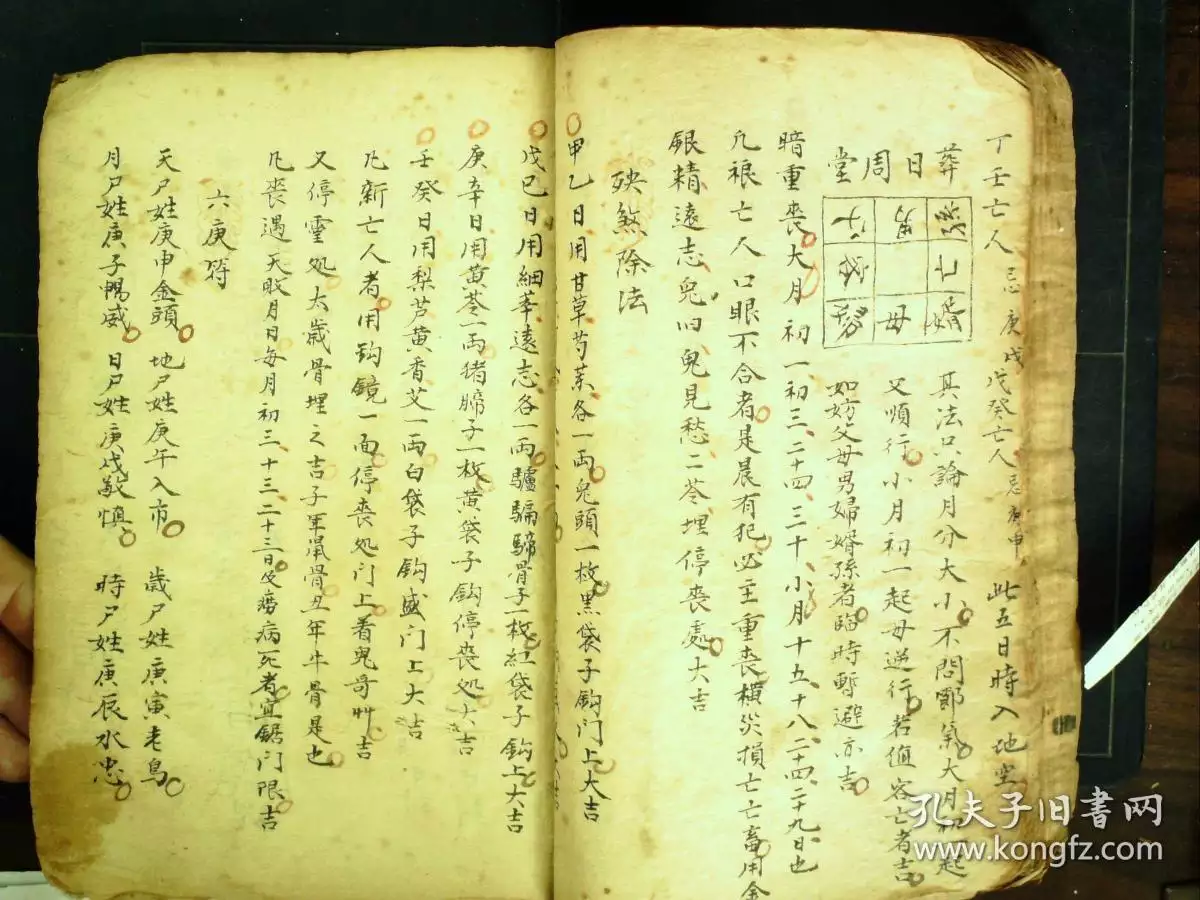 丁壬亡人忌庚戌 戊癸亡人忌庚申 此五日時入地空
葬日周堂
其法只論月分大小不問節氣大月初起
又順行小月初一起母逆行若值客亡者吉
如妨父母男婦婿孫者臨時暫避亦吉
亡
婿
母
暗重喪大月初一、初三、二十四、三十、小月十五、十八、二十四、二十九日也
凡被亡人口眼不合者是晨有犯必主重喪橫災損亡亡畜用金
銀精遠志鬼旧鬼見愁二苓埋停喪處大吉
殃煞除法
甲乙日用甘草芍藥各一兩兔頭一枚黑袋子鈎门上大吉
戊巳日用細莘遠志各一兩驢騸蹄骨子一枚紅袋子鈎上大吉
庚辛日用黃苓一兩猪蹄子一枚黃袋子鈎停喪处大吉
壬癸日用梨芦黃香艾一兩白袋子鈎盛门上大吉
凡新亡人者用鈎鏡一面停喪処门上着鬼哥艸吉
又停霊処太歲骨埋之吉子年鼠骨丑年牛骨是也
凡喪遇天敗月日每月初三、十三、二十三日及癆病死者宜鋸门限吉
六庚符
天尸姓庚申金頭 地尸姓庚午入市 歲尸姓庚寅老烏
月尸姓庚子暢威 日尸姓庚戌敬慎 時尸姓庚辰水忠
孔夫子旧書网
www.kongfz.com